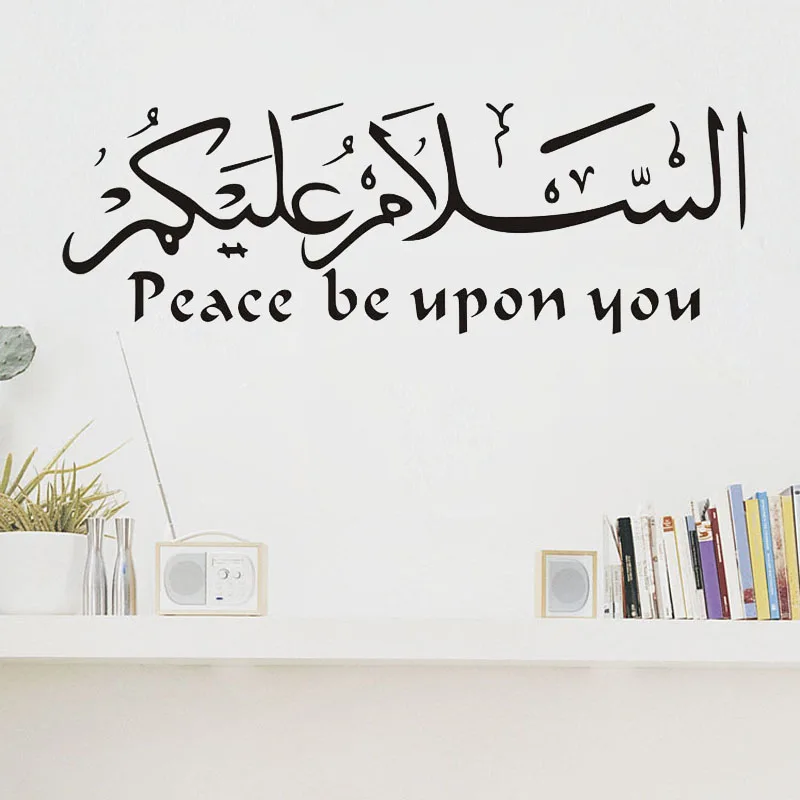 السَّلَامُ عَلَيْكُمْ
Peace be upon you